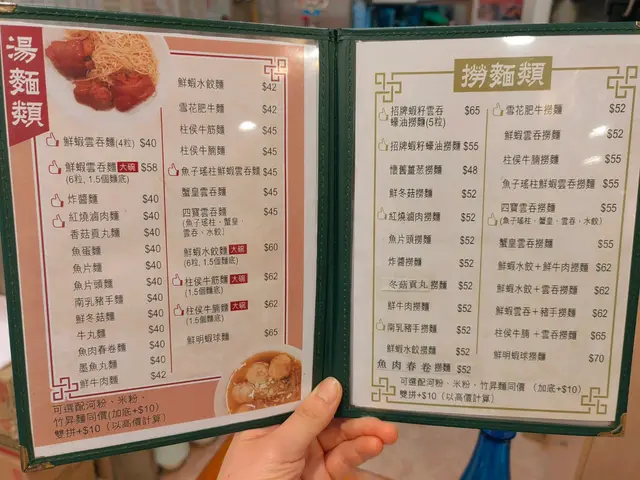 湯麵類
鮮蝦雲吞麵(4粒) $40
鮮蝦雲吞麵 大碗 $58
(6粒, 1.5個麵底)
炸醬麵 $40
紅燒滷肉麵 $40
香菇貢丸麵 $40
魚蛋麵 $40
魚片麵 $40
魚片頭麵 $40
南乳豬手麵 $40
鮮冬菇麵 $40
牛丸麵 $40
魚肉春卷麵 $40
墨魚丸麵 $40
鮮牛肉麵 $42
鮮蝦水餃麵 $42
雪花肥牛麵 $42
柱侯牛筋麵 $45
柱侯牛腩麵 $45
魚子瑤柱鮮蝦雲吞麵 $45
蟹皇雲吞麵 $45
四寶雲吞麵 $45
(魚子瑤柱、蟹皇、
雲吞、水餃)
鮮蝦水餃麵 大碗 $60
(6粒, 1.5個麵底)
柱侯牛筋麵 大碗 $62
(1.5個麵底)
柱侯牛腩麵 大碗 $62
(1.5個麵底)
鮮明蝦球麵 $65
可選配河粉、米粉、
竹昇麵同價(加底+$10)
雙拼+$10 (以高價計算)
撈麵類
招牌蝦籽雲吞 $65
蠔油撈麵(5粒)
招牌蝦籽蠔油撈麵 $55
懷舊薑葱撈麵 $48
鮮冬菇撈麵 $52
紅燒滷肉撈麵 $52
魚片頭撈麵 $52
炸醬撈麵 $52
冬菇貢丸撈麵 $52
鮮牛肉撈麵 $52
南乳豬手撈麵 $52
鮮蝦水餃撈麵 $52
魚肉春卷撈麵 $52
雪花肥牛撈麵 $52
鮮蝦雲吞撈麵 $52
柱侯牛腩撈麵 $55
魚子瑤柱鮮蝦雲吞撈麵 $55
四寶雲吞撈麵 $55
(魚子瑤柱、蟹皇、雲吞、水餃)
蟹皇雲吞撈麵 $55
鮮蝦水餃+鮮牛肉撈麵 $62
鮮蝦水餃+雲吞撈麵 $62
鮮蝦雲吞+豬手撈麵 $62
柱侯牛腩+雲吞撈麵 $65
鮮明蝦球撈麵 $70
可選配河粉、米粉、竹昇麵同價 (加底+$10)
雙拼+$10 (以高價計算)